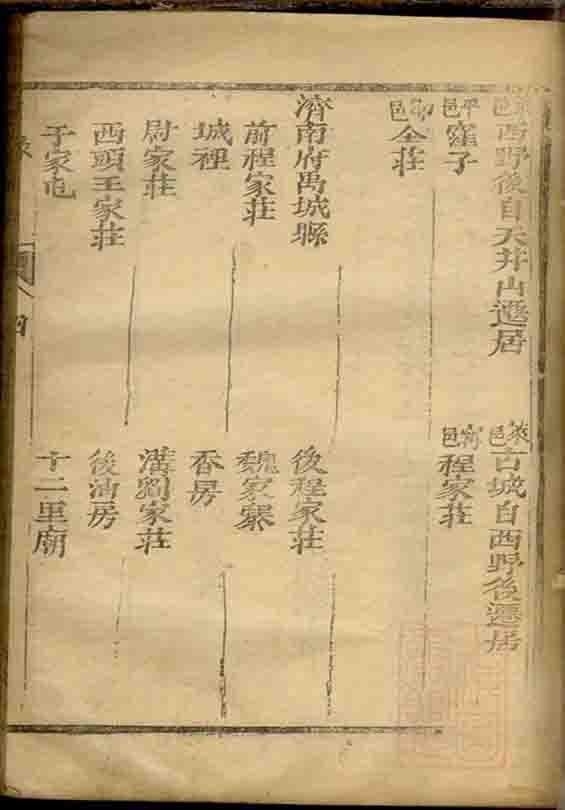 萊邑西野後自天井山遷居
萊邑古城自西野後遷居
平邑窪子
寧邑程家莊
寧邑全莊
濟南府禹城縣
後程家莊
前程家莊
魏家寨
城裡
香房
尉家莊
溝劉家莊
西頭王家莊
後油房
于家屯
十二里廟
四